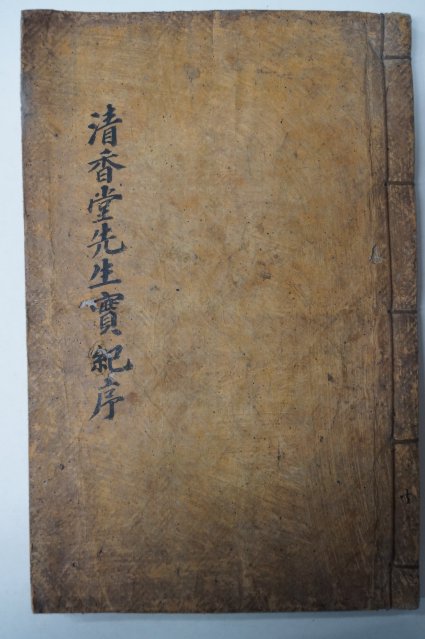 清香堂先生實紀序